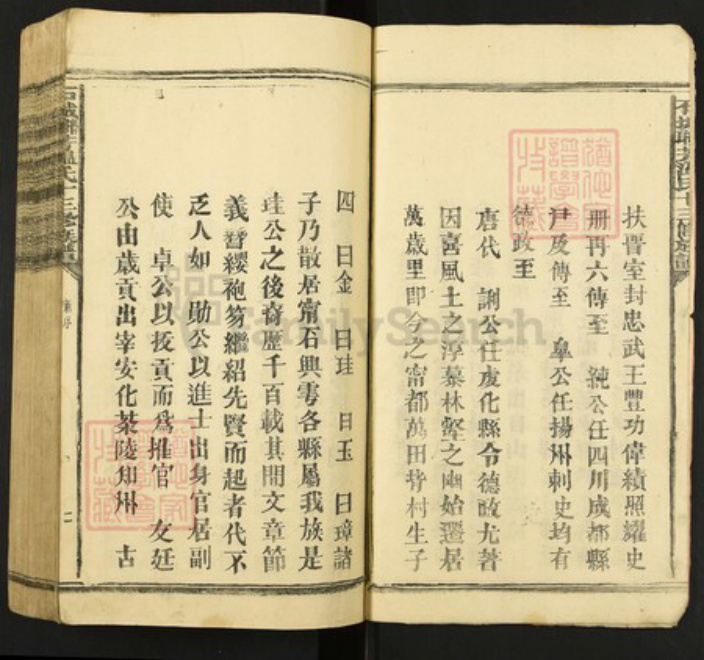 扶晉室封忠武王豐功偉績照耀史
冊再六傳至 純公任四川成都縣
尹及傳至 臯公任揚州刺史均有
德政至
唐代 詗公任虔化縣令德政尤著
因喜風土之淳慕林壑之幽始遷居
萬歲里即今之甯都萬田塅村生子
四 曰金 曰珪 曰玉 曰璋諸
子乃散居甯石興雩各縣屬我族是
珪公之後裔歷千百載其間文章節
義簪纓袍笏繼紹先賢而起者代不
乏人如 勛公以進士出身官居副
使 卓公以拔貢而爲推官 友廷
公由歲貢出宰安化茶陵知州 古
二
FamilySearch